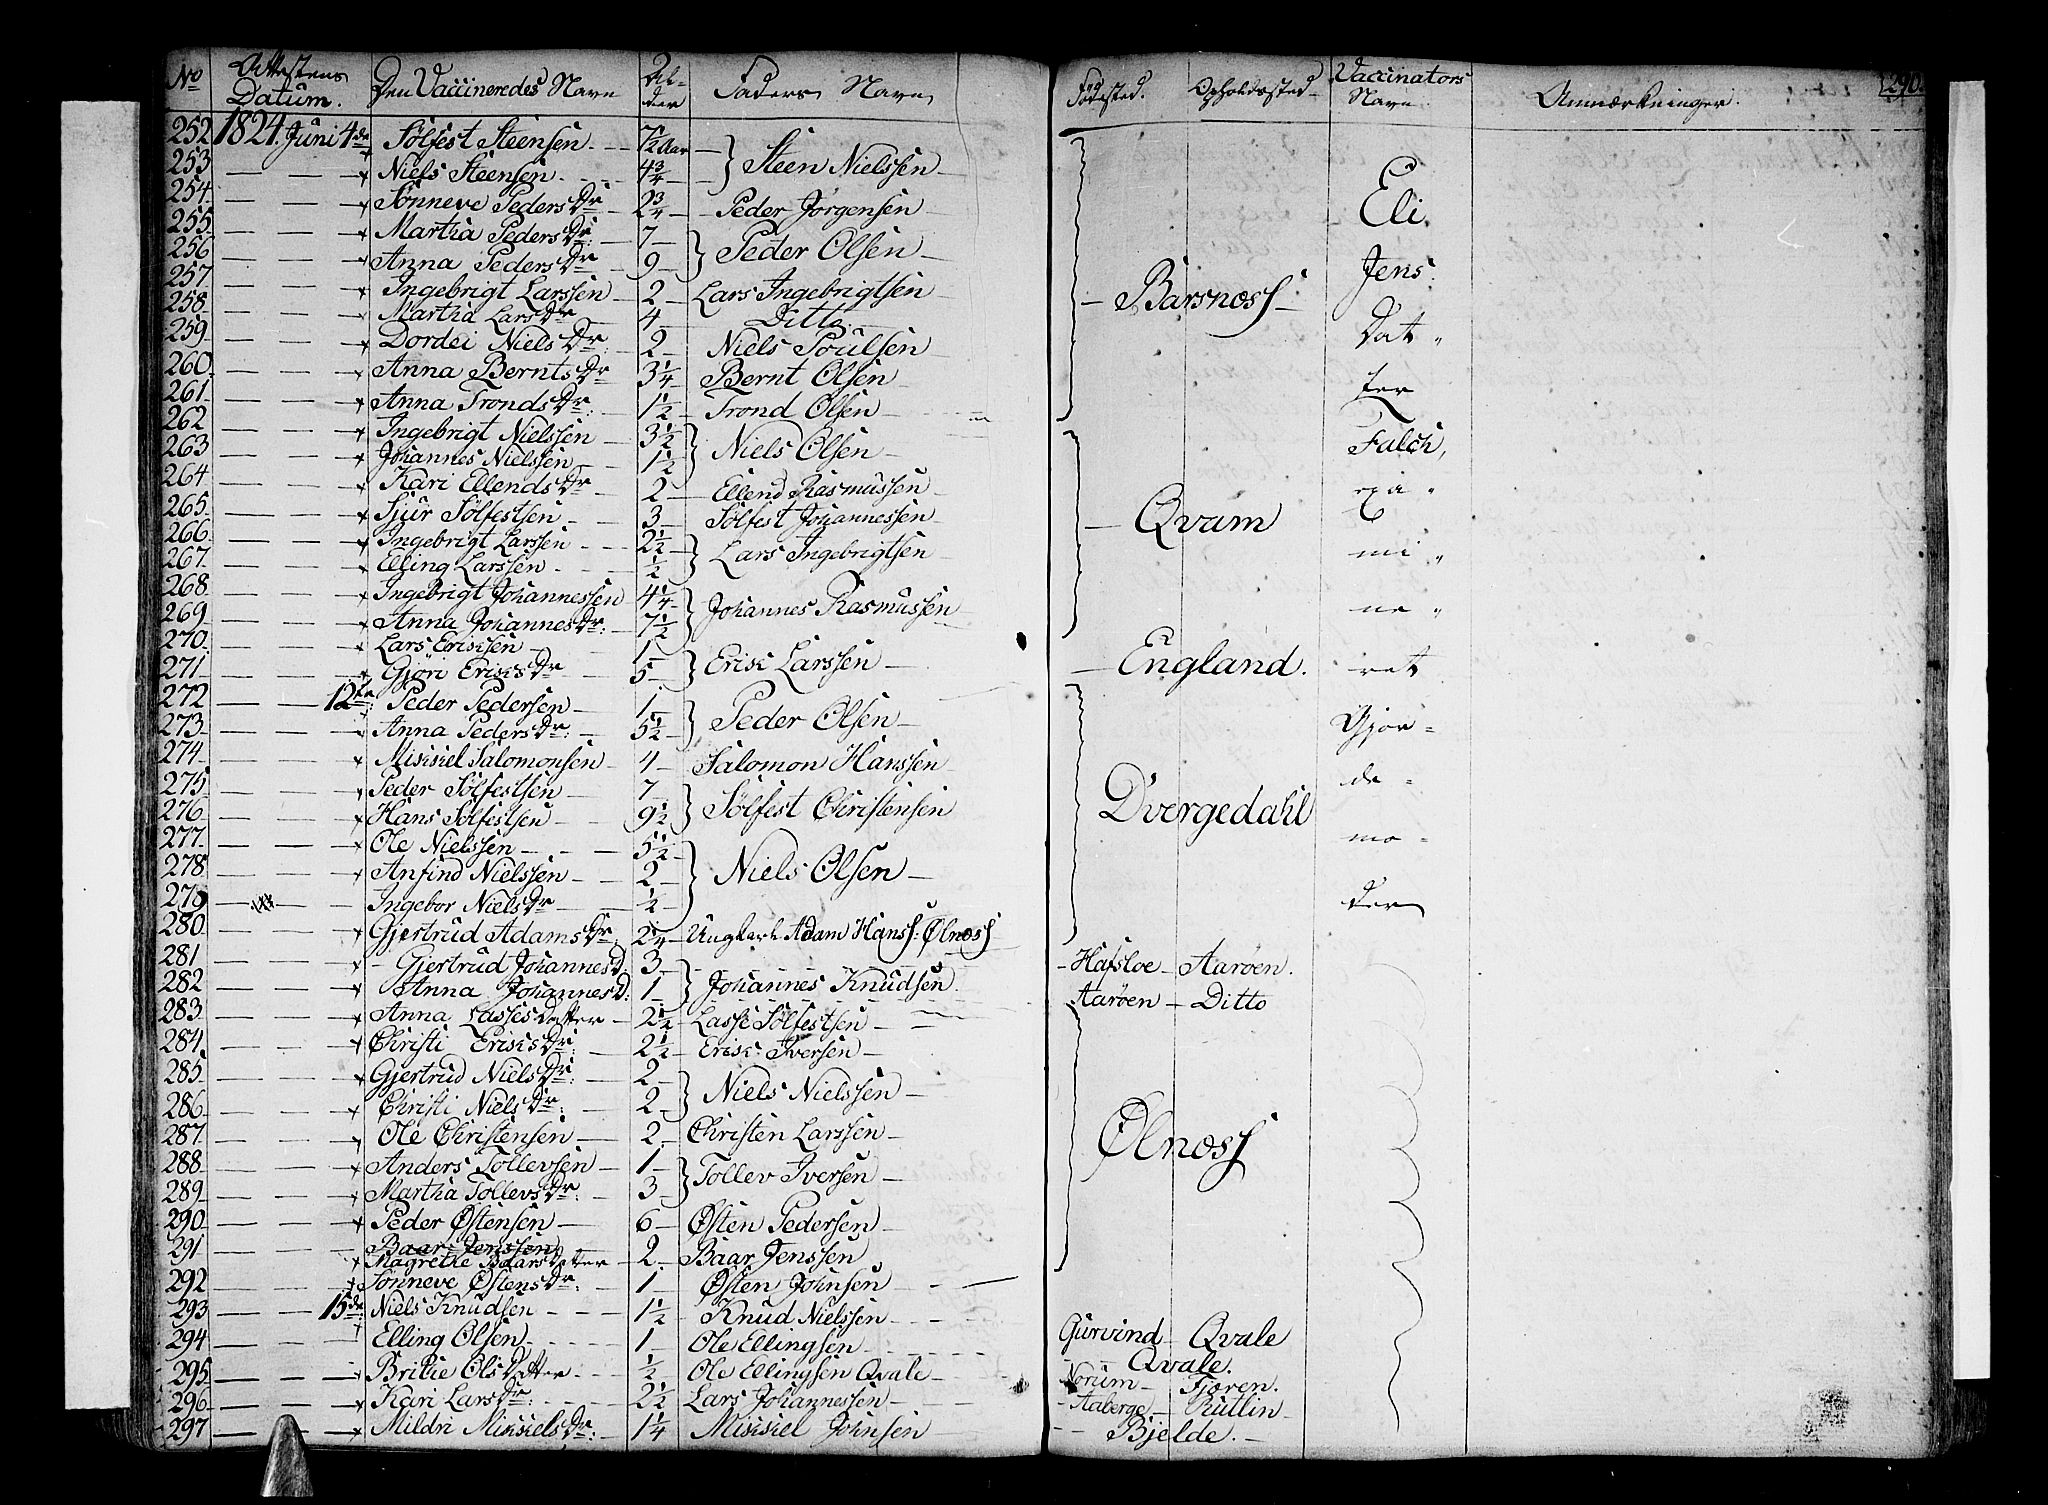 No Attestens Datum. Den Vaccineredes Navn Alder Faders Navn Fødested. Opholdssted Vaccinators Navn. Anmærkninger. 290
252 1824. Juni 4de Sølfest Steensen 7½ Aar Steen Nielssen
253 Niels Steensen 4¾
254 Sønneve Peders Dr 2¾ Peder Jørgensen
255 Martha Peders Dr: 7 Peder Olsen
256 Anna Peders Dr 9
257 Ingebrigt Larssen 2 Lars Ingebrigtsen
258 Martha Lars Dr 4 Ditto
259 Dordei Niels Dr 2 Niels Poulsen
260 Anna Bernts Dr 3¼ Bernt Olsen
261 Anna Tronds Dr: 1½ Trond Olsen
262 Ingebrigt Nielssen 3½ Niels Olsen
263 Johannes Nielssen 1½
264 Kari Ellends Dr 2 Ellend Rasmussen
265 Sjur Sølfestsen 3 Sølfest Johannessen
266 Ingebrigt Larssen 2½ Lars Ingebrigtsen
267 Elling Larssen ½
268 Ingebrigt Johannessen 4¼ Johannes Rasmussen
269 Anna Johannes Dr: 7½
270 Lars Erikssen 1 Erik Larssen
271 Gjøri Eriks Dr 5
272 12te Peder Pedersen 1 Peder Olsen
273 Anna Peders Dr: 5½
274 Mikkel Salomonsen 4 Salomon Hanssen
275 Peder Sølfestsen 7 Sølfest Christensen
276 Hans Sølfestsen 9½
277 Ole Nielssen 5½ Niels Olsen
278 Anfind Nielssen 2
279 Ingebor Niels Dr ½
280 Gjertrud Adams Dr Ungkarl Adam Hanss: Ølnæss
281 Gjertrud Johannes D. 3 Johannes Knudsen
282 Anna Johannes D: 1
283 Anna Lasses Datter 2½ Lasse Sølfestsen
284 Christi Eriks Dr: 2½ Erik Iversen
285 Gjertrud Niels Dr: 2 Niels Nielssen
286 Christi Niels Dr: 2
287 Ole Christensen 2 Christen Larssen
288 Anders Tollevsen 1 Tollev Iversen
289 Martha Tollevs Dr: 3
290 Peder Østensen 6 Østen Pedersen
291 Baar Jenssen
Magrethe Baars Datter 2 Baar Jenssen
292 Sønneve Østens Dr: 1 Østen Johnsen
293 15de Niels Knudsen 1½ Knud Nielssen
294 Elling Olsen 1 Ole Ellingsen
295 Ols Datter ½ Ole Ellingsen Qvale
296 Kari Lars Dr: 2½ Lars Johannessen
297 Mildri Mikkels Dr: 1¼ Mikkel Johnsen
Barsnæss
Qvam
England.
Dvergedahl
Hafsloe Aarøen.
Aarøen Ditto
Ølnæss
Gurvind Qvale
Qvale.
Norum Fjæren.
Aaberge Rutlin
Bjelde.
Eli
Jens
Dat
ter
Falch,
exa
mi
ne
ret
Gjor
de
mo
der